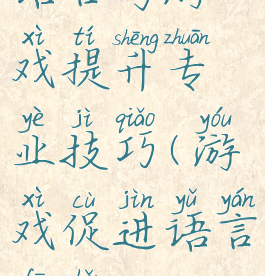 xì tí shēng zhuān
戏提升专
yè jì qiǎo yóu
业技巧(游
xì cù jìn yǔ yán
戏促进语言